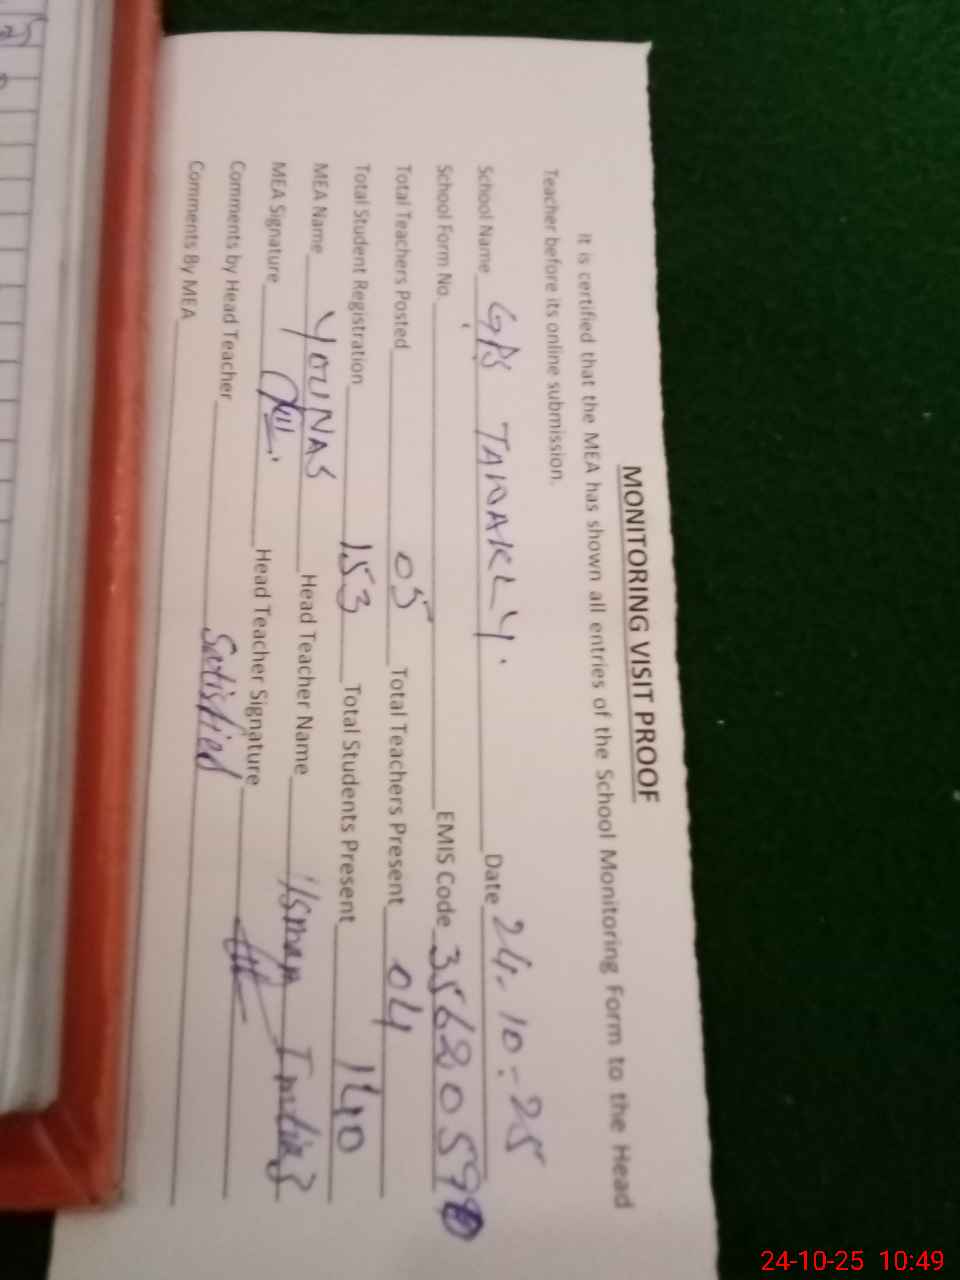 MONITORING VISIT PROOF
It is certified that the MEA has shown all entries of the School Monitoring Form to the Head
Teacher before its online submission.
School Name GPS Date 24-10-25
School Form No. EMIS Code
Total Teachers Posted 05 Total Teachers Present 04
Total Student Registration 153 Total Students Present 140
MEA Name YOUNAS Head Teacher Name Usman Imtiaz
MEA Signature Head Teacher Signature
Comments by Head Teacher Satisfied
Comments By MEA
24-10-25 10:49